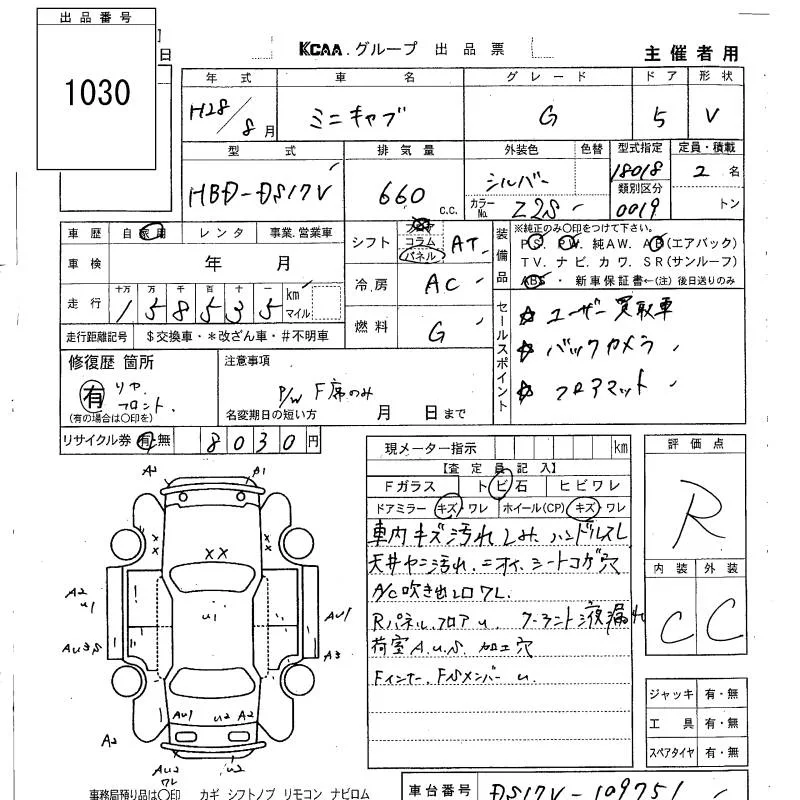 出品番号
1030
日
KCAA.グループ 出品票
主催者用
年式 車名 グレード ドア 形状
H28/8月 ミニキャブ G 5 V
型式 排気量 外装色 色替 型式指定 定員・積載
HBD-DS17V 660 c.c. シルバー 18018 2名
カラーNo. Z2S 類別区分 0019 トン
車歴 自家用 レンタ 事業.営業車
車検 年 月
走行 十万 万 千 百 十 一 km マイル
158535
走行距離記号 $交換車・*改ざん車・#不明車
シフト フロア コラム パネル AT
冷房 AC
燃料 G
装備品
※純正のみ〇印をつけて下さい。
PS PW 純AW. AB(エアバック)
TV. ナビ. カワ. SR(サンルーフ)
ABS ・ 新車保証書←(注)後日送りのみ
セールスポイント
☆ ユーザー買取車
☆ バックカメラ
☆ フロアマット
修復歴 箇所
有 リヤ フロント.
(有の場合は〇印を)
注意事項
P/W F席のみ
名変期日の短い方 月 日まで
リサイクル券 有・無 8030円
現メーター指示 km
【査定員記入】
Fガラス トビ石 ヒビワレ
ドアミラー キズ・ワレ ホイール(CP) キズ・ワレ
車内キズ汚れ シミ. ハンドルスレ
天井ヤニ汚れ. ニオイ. シートコゲ穴
A/C吹き出し口ワレ.
Rパネル.フロア u. クーラント液漏れ
荷室A.u.S. 加工穴
Fインナー. FSメンバー u.
評価点
R
内装 外装
C C
ジャッキ 有・無
工具 有・無
スペアタイヤ 有・無
A2 A1
××
A2 u1 u1 Au1
Au3S A3
Au1 u2 A2
A2
Au2 ワレ u2
事務局預り品は〇印 カギ シフトノブ リモコン ナビロム
車台番号 DS17V-109751